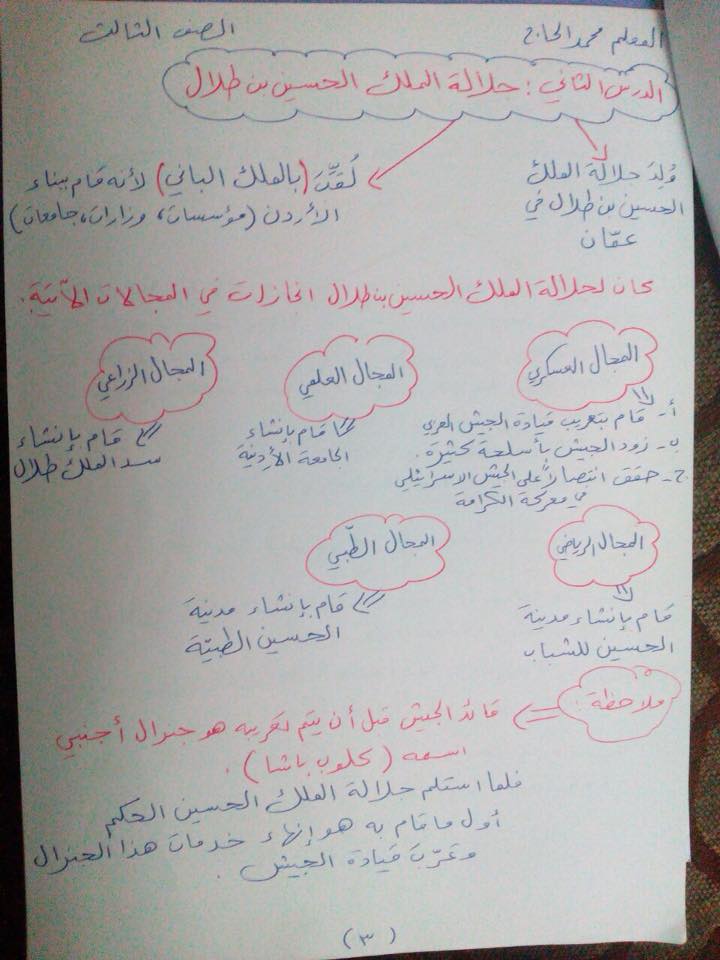 المعلم محمد الحاج
الصف الثالث
الدرس الثاني : جلالة الملك الحسين بن طلال
وُلِدَ جلالة الملك
الحسين بن طلال في
عمّان
لُقِّبَ (بالملك الباني) لأنه قام ببناء
الأردن (مؤسسات، وزارات، جامعات)
كان لجلالة الملك الحسين بن طلال انجازات في المجالات الآتية:
المجال العسكري
أ- قام بتعريب قيادة الجيش العربي
ب- زود الجيش بأسلحة كثيرة.
ج- حقق انتصاراً على الجيش الاسرائيلي
في معركة الكرامة
المجال العلمي
قام بإنشاء
الجامعة الأردنية
المجال الزراعي
قام بإنشاء
سد الملك طلال
المجال الرياضي
قام بإنشاء مدينة
الحسين للشباب
المجال الطّبي
قام بإنشاء مدينة
الحسين الطبيّة
ملاحظة:
قائد الجيش قبل أن يتم تعريبه هو جنرال أجنبي
اسمه (كلوب باشا).
فلما استلم جلالة الملك الحسين الحكم
أول ما قام به هو إنهاء خدمات هذا الجنرال
وعرّب قيادة الجيش.
(٣)